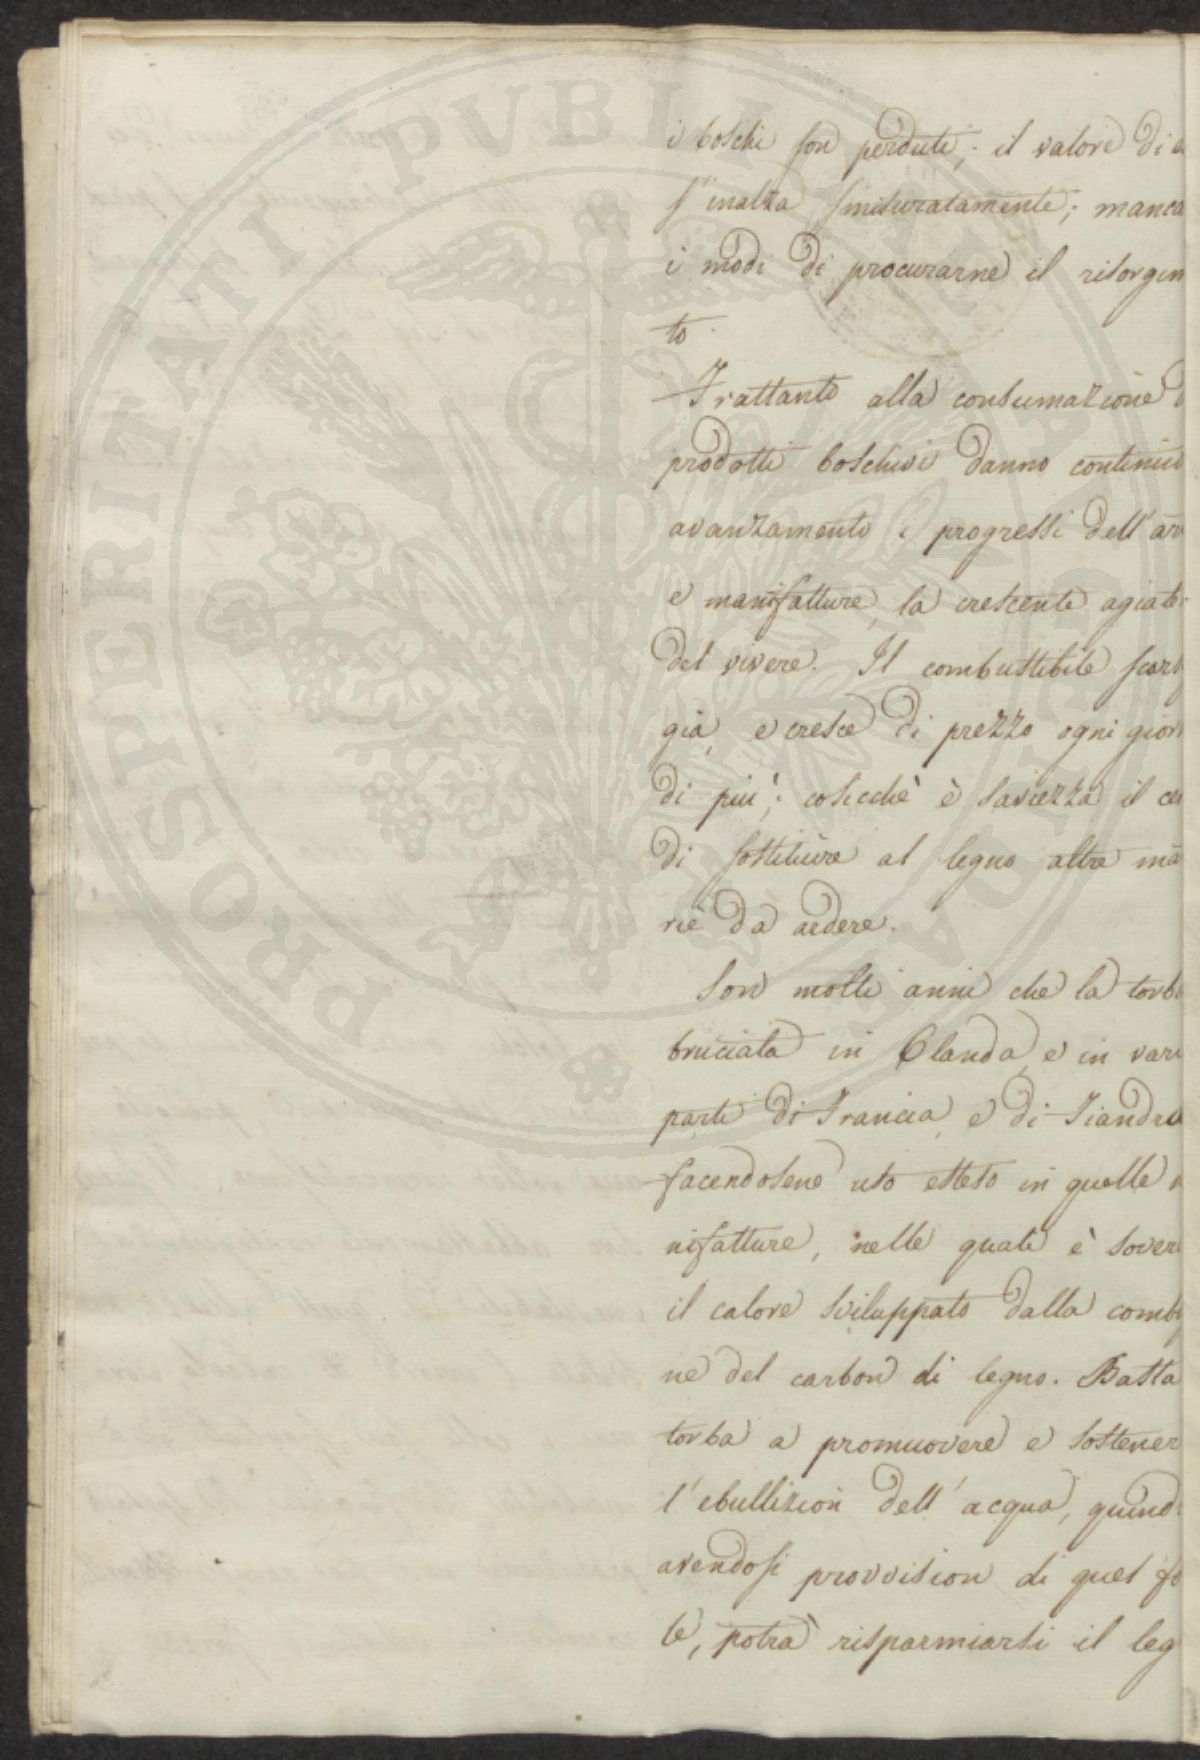 i boschi son perduti; il valore di
s'inalza smisuratamente; manca
i modi di procurarne il risorgim
to.
Frattanto alla consumazione
prodotti boschivi danno continuo
avanzamento i progressi dell'ar
e manifatture, la crescente agiate
del vivere. Il combustibile scars
già, e cresce di prezzo ogni gior
di più; cosicchè è saviezza il ce
di sostituire al legno altre ma
rie da ardere.
Son molti anni che la torba
bruciata in Olanda, e in vari
parti di Francia, e di Fiandra
facendosene uso esteso in quelle
nifatture, nelle quali è sover
il calore sviluppato dalla comb
ne del carbon di legno. Basta
torba a promuovere e sostener
l'ebullizion dell'acqua, quind
avendosi provvision di quel fo
le, potrà risparmiarsi il leg
PROSPERITATI PUBLI